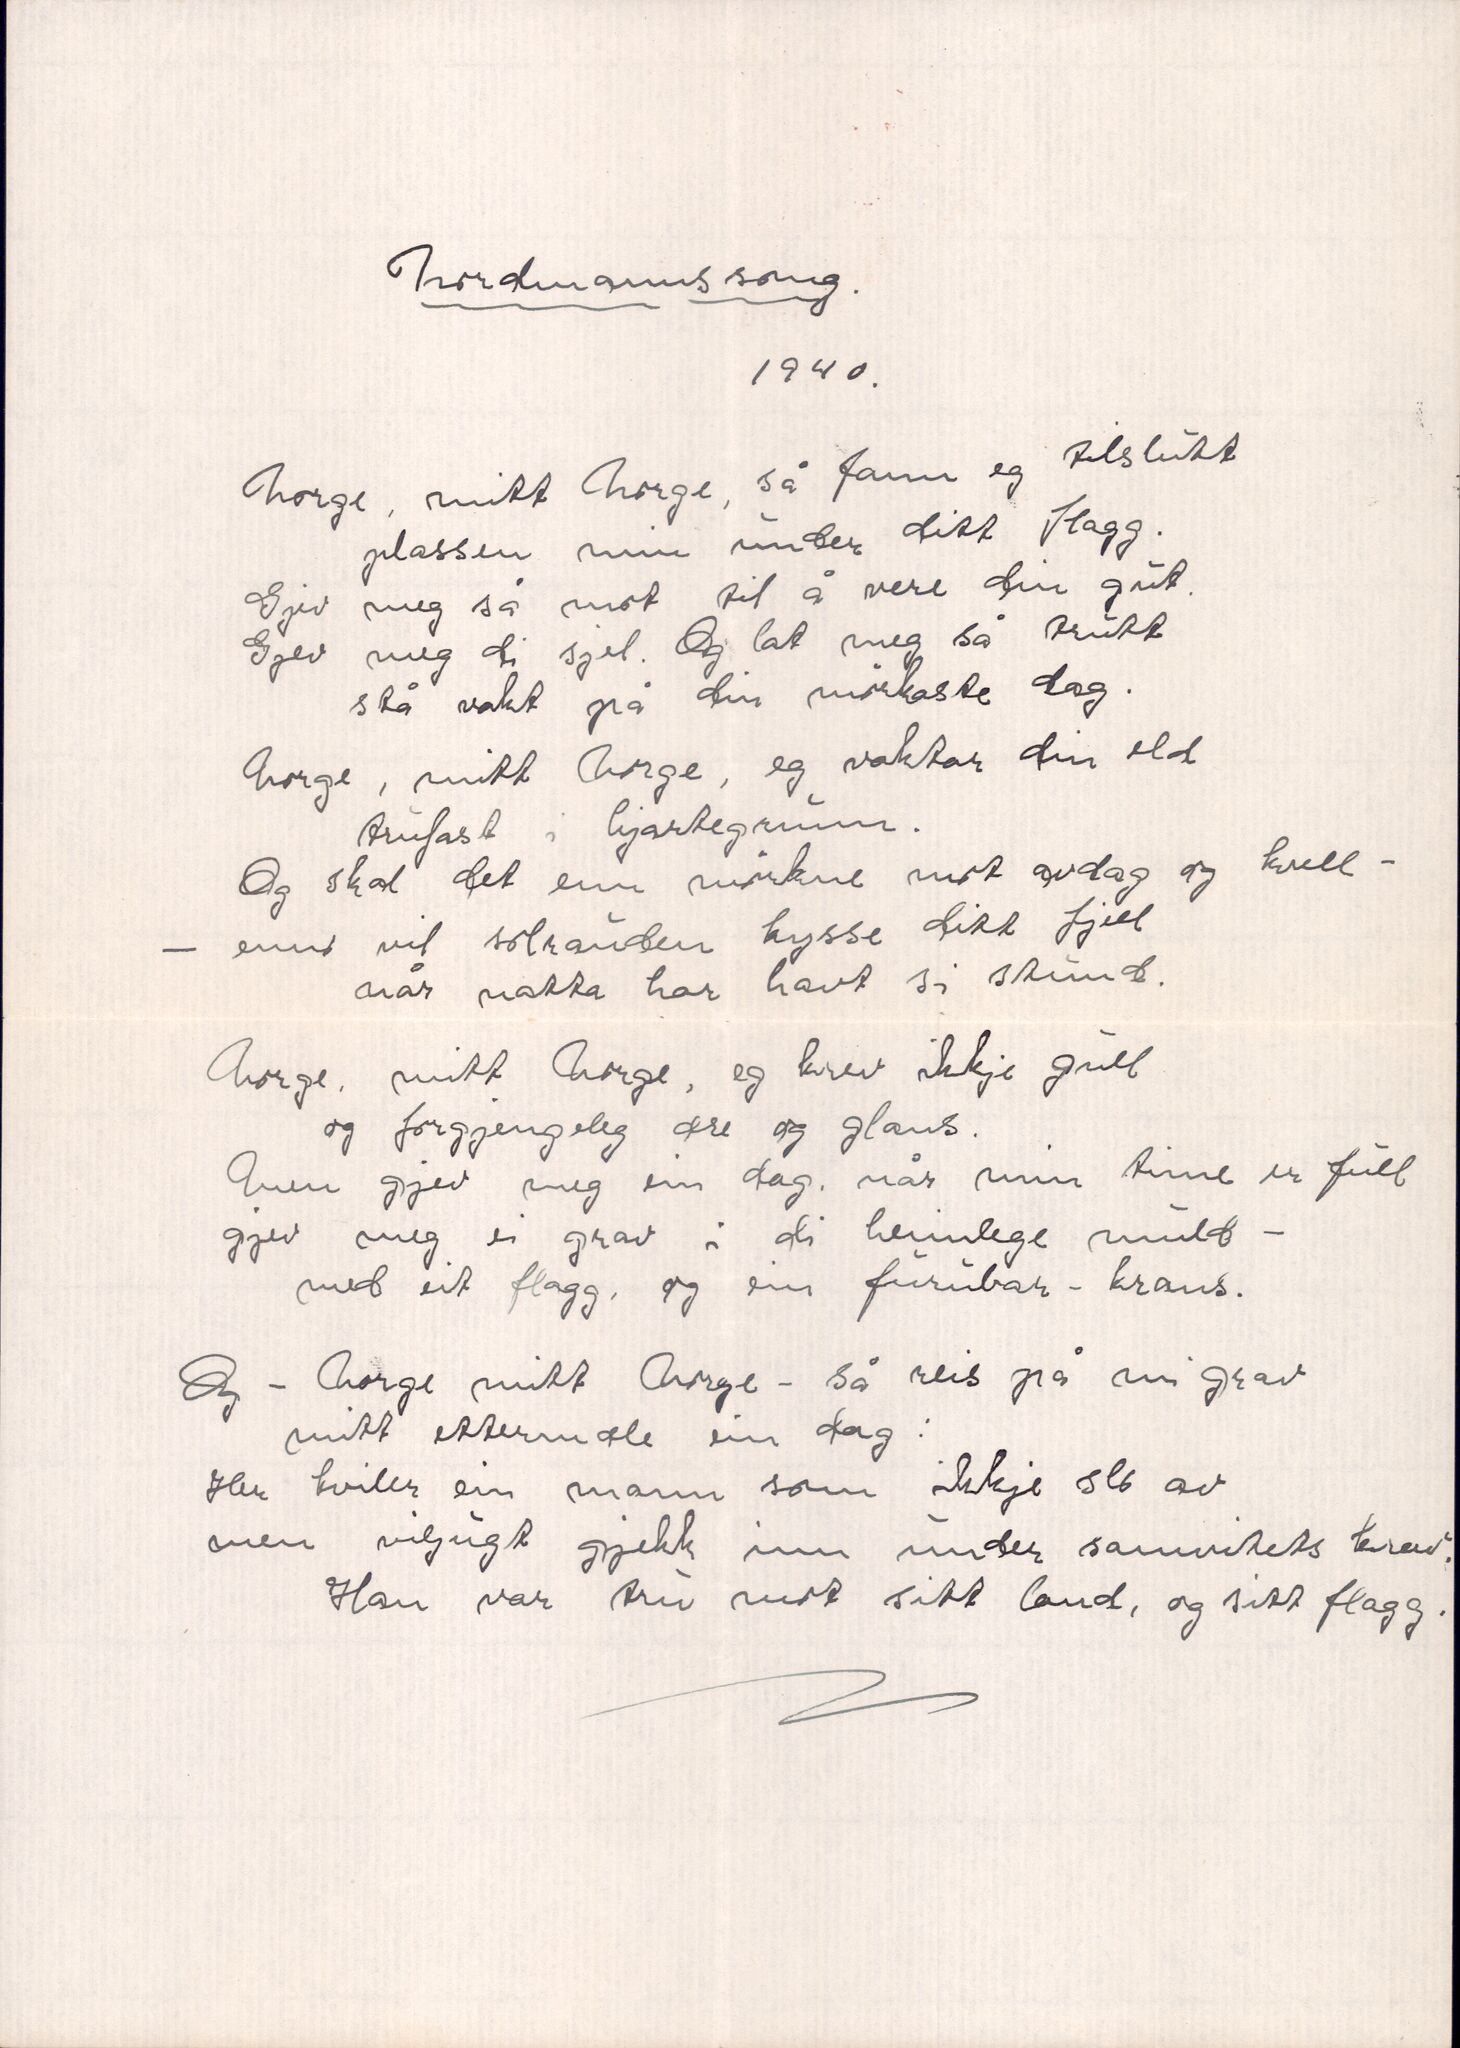 Nordmannssong.
1940.
Norge, mitt Norge, så fann eg tilslutt
plassen min under ditt flagg.
Gjev meg så mot til å vere din gut.
Gjev meg di sjel. Og lat meg så trutt
stå vakt på din mörkaste dag.
Norge, mitt Norge, eg vaktar din eld
trufast i hjartegrunn.
Og skal det enn mörkne mot avdag og kvell -
- enno vil solrauden kysse ditt fjell
når natta har havt si stund.
Norge, mitt Norge, eg krev ikkje gull
og forgjengeleg ære og glans.
Men gjev meg ein dag, når min time er full
gjev meg ei grav i di heimlege muld -
med eit flagg, og ein furubar-krans.
Og - Norge mitt Norge - så reis på mi grav
mitt ettermæle ein dag:
Her kviler ein mann som ikkje slo av
men viljugt gjekk inn under samvitets krav.
Han var tru mot sitt land, og sitt flagg.